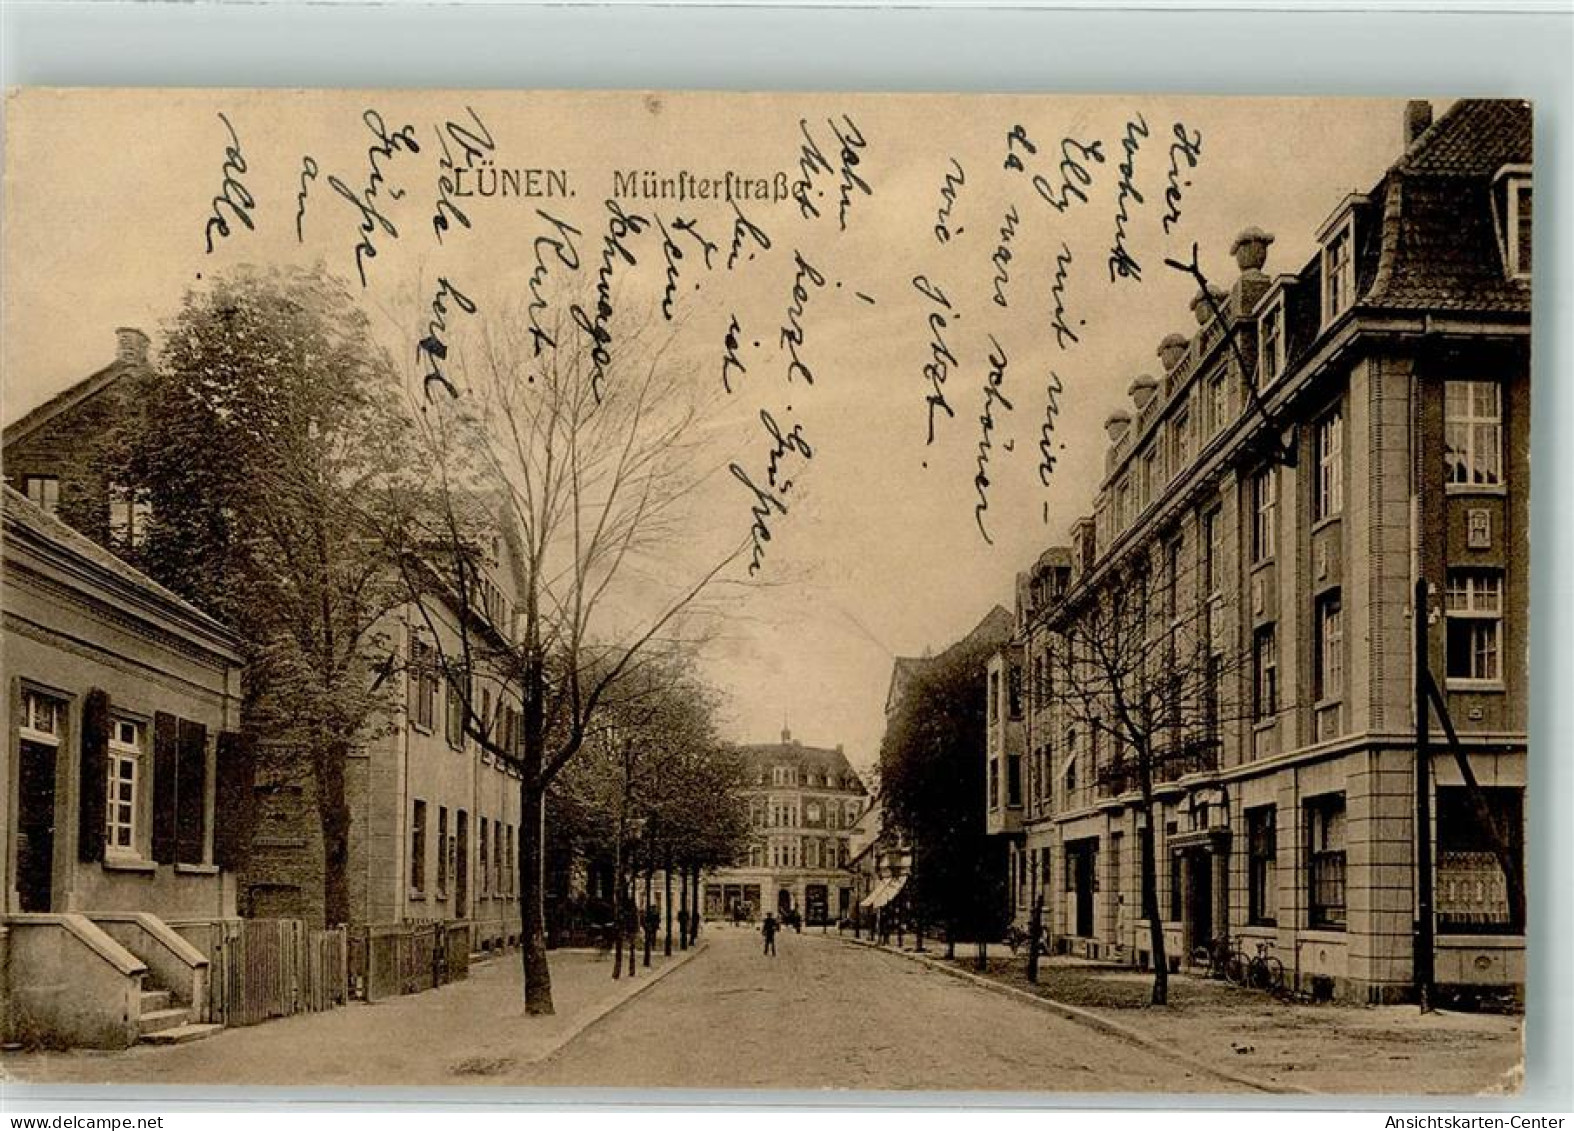 LÜNEN. Münsterstraße
Hier
wohnt
Elly mit mir –
da wars schöner
wie jetzt.
Sohn
Mit herzl. Grüßen
bin ich
Dein
Schwager
Kurt.
Viele herzl.
Grüße
an
alle.
Ansichtskarten-Center